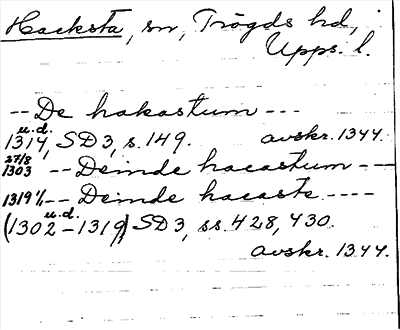 Hacksta, sn, Trögds hd,
Upps. l.
-- De hakastum ---
u.d.
1314, SD 3, s. 149. avskr. 1344.
27/8
1303 -- Deinde hacastum ---
1319 1/1 -- Deinde hacasta ----
u.d.
(1302 - 1319) SD 3, ss. 428, 430.
avskr. 1344.